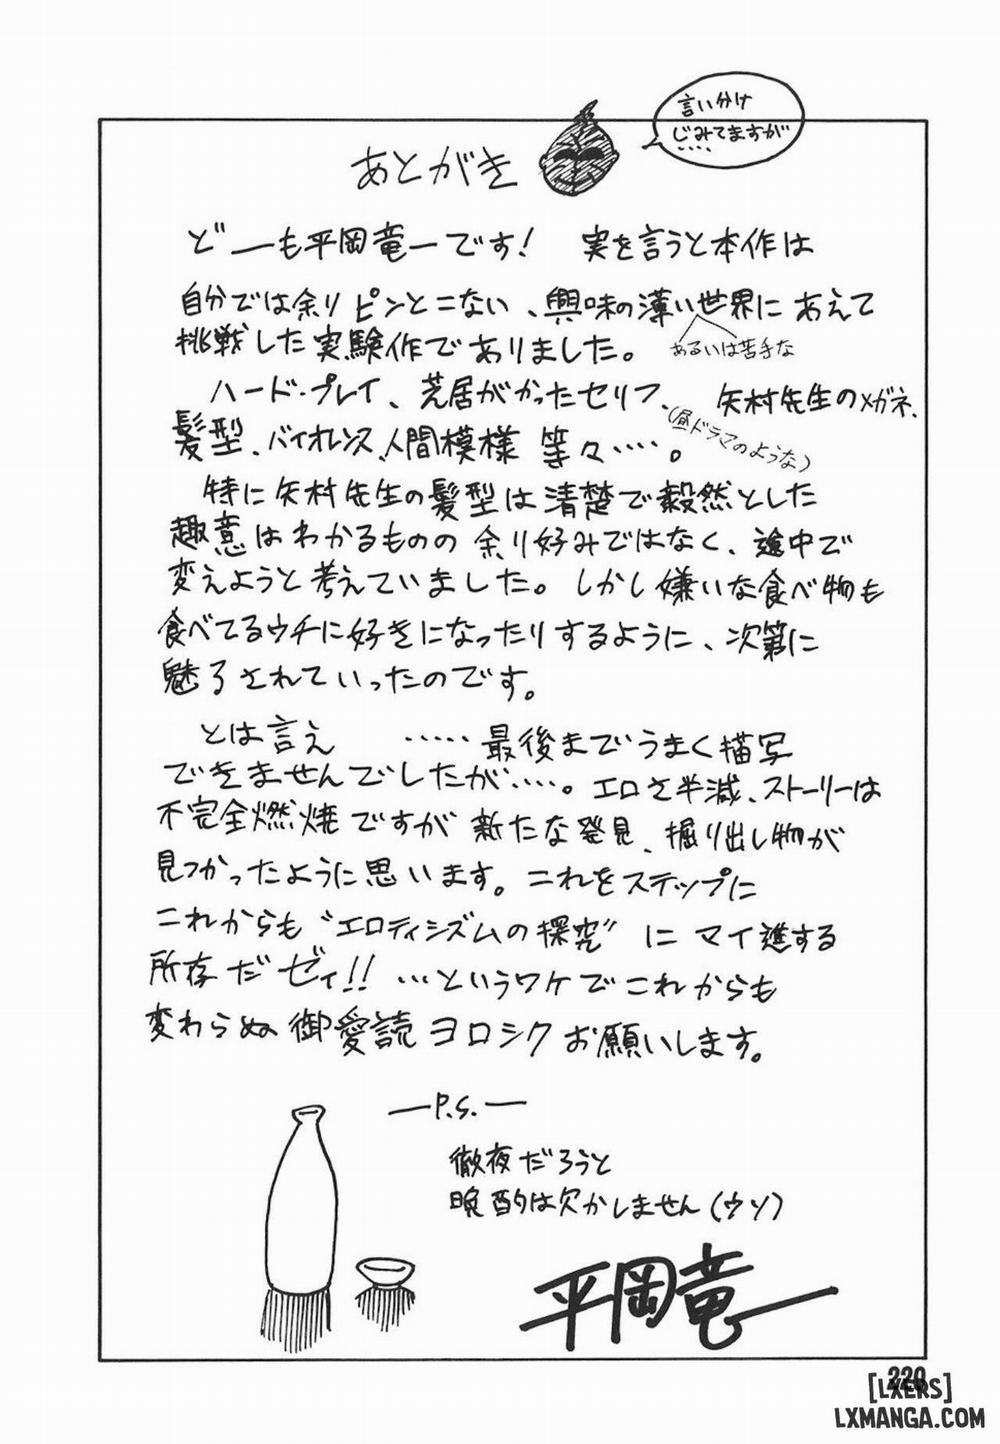 言い分け
じみてますが
・・・・
あとがき
どーも平岡竜一です！ 実を言うと本作は
自分では余りピンとこない、興味の薄い世界にあえて
挑戦した実験作でありました。
あるいは苦手な
ハード・プレイ、芝居がかったセリフ、矢村先生のメガネ、
髪型、バイオレンス、人間模様 等々・・・・。
（昼ドラマのような）
特に矢村先生の髪型は清楚で毅然とした
趣意はわかるものの 余り好みではなく、途中で
変えようと考えていました。しかし嫌いな食べ物も
食べてるウチに好きになったりするように、次第に
魅了されていったのです。
とは言え ・・・・・最後までうまく描写
できませんでしたが・・・・。エロさ半減、ストーリーは
不完全燃焼ですが 新たな発見、掘り出し物が
見つかったように思います。これをステップに
これからも“エロティシズムの探究”に マイ進する
所存だゼィ!! …というワケでこれからも
変わらぬ御愛読ヨロシクお願いします。
—P.S.—
徹夜だろうと
晩酌は欠かしません（ウソ）
平岡竜一
220
[LXERS]
LXMANGA.COM